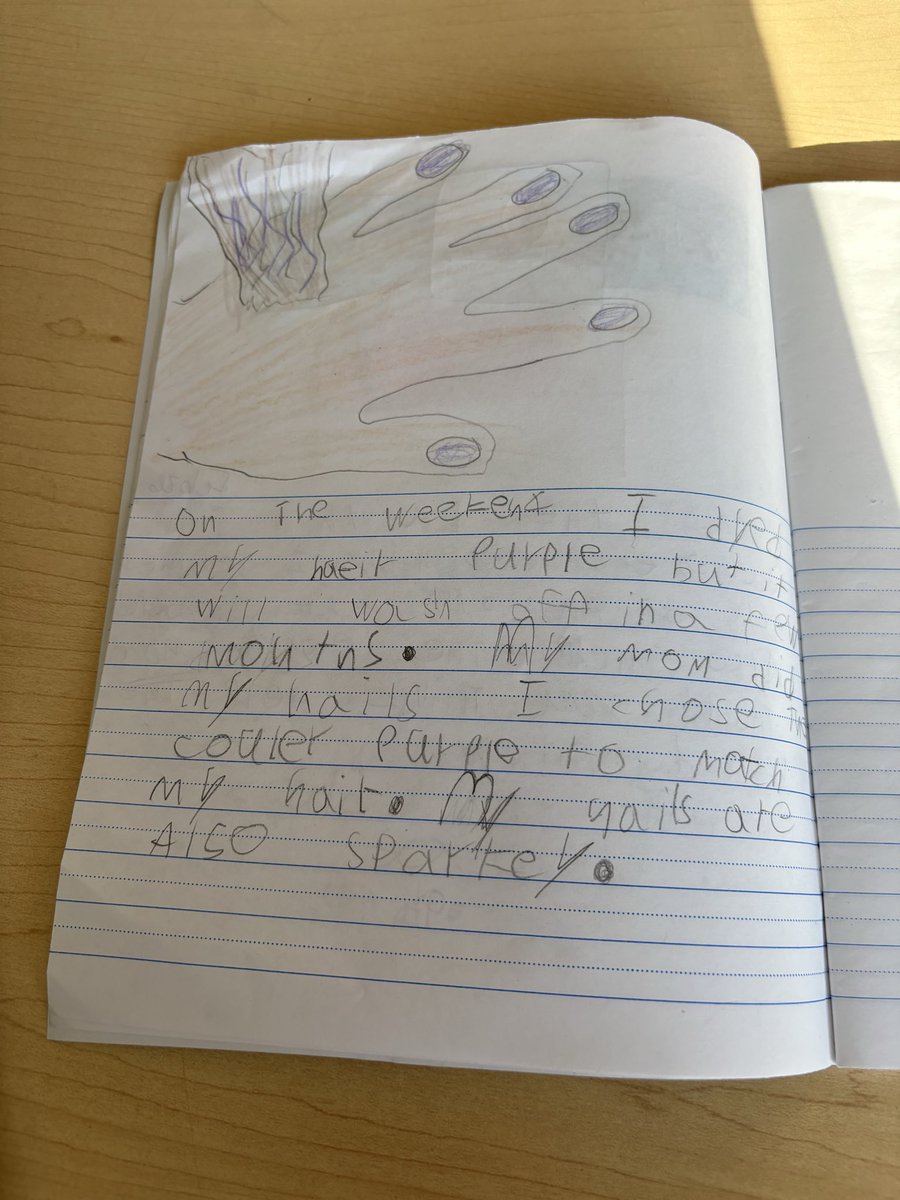 On The weekend I dyed
My haeir Purple but it
will wash off in a few
mouths. My mom did
My nails I chose The
couler Purple to match
My hair. My nails are
Also sparkey.